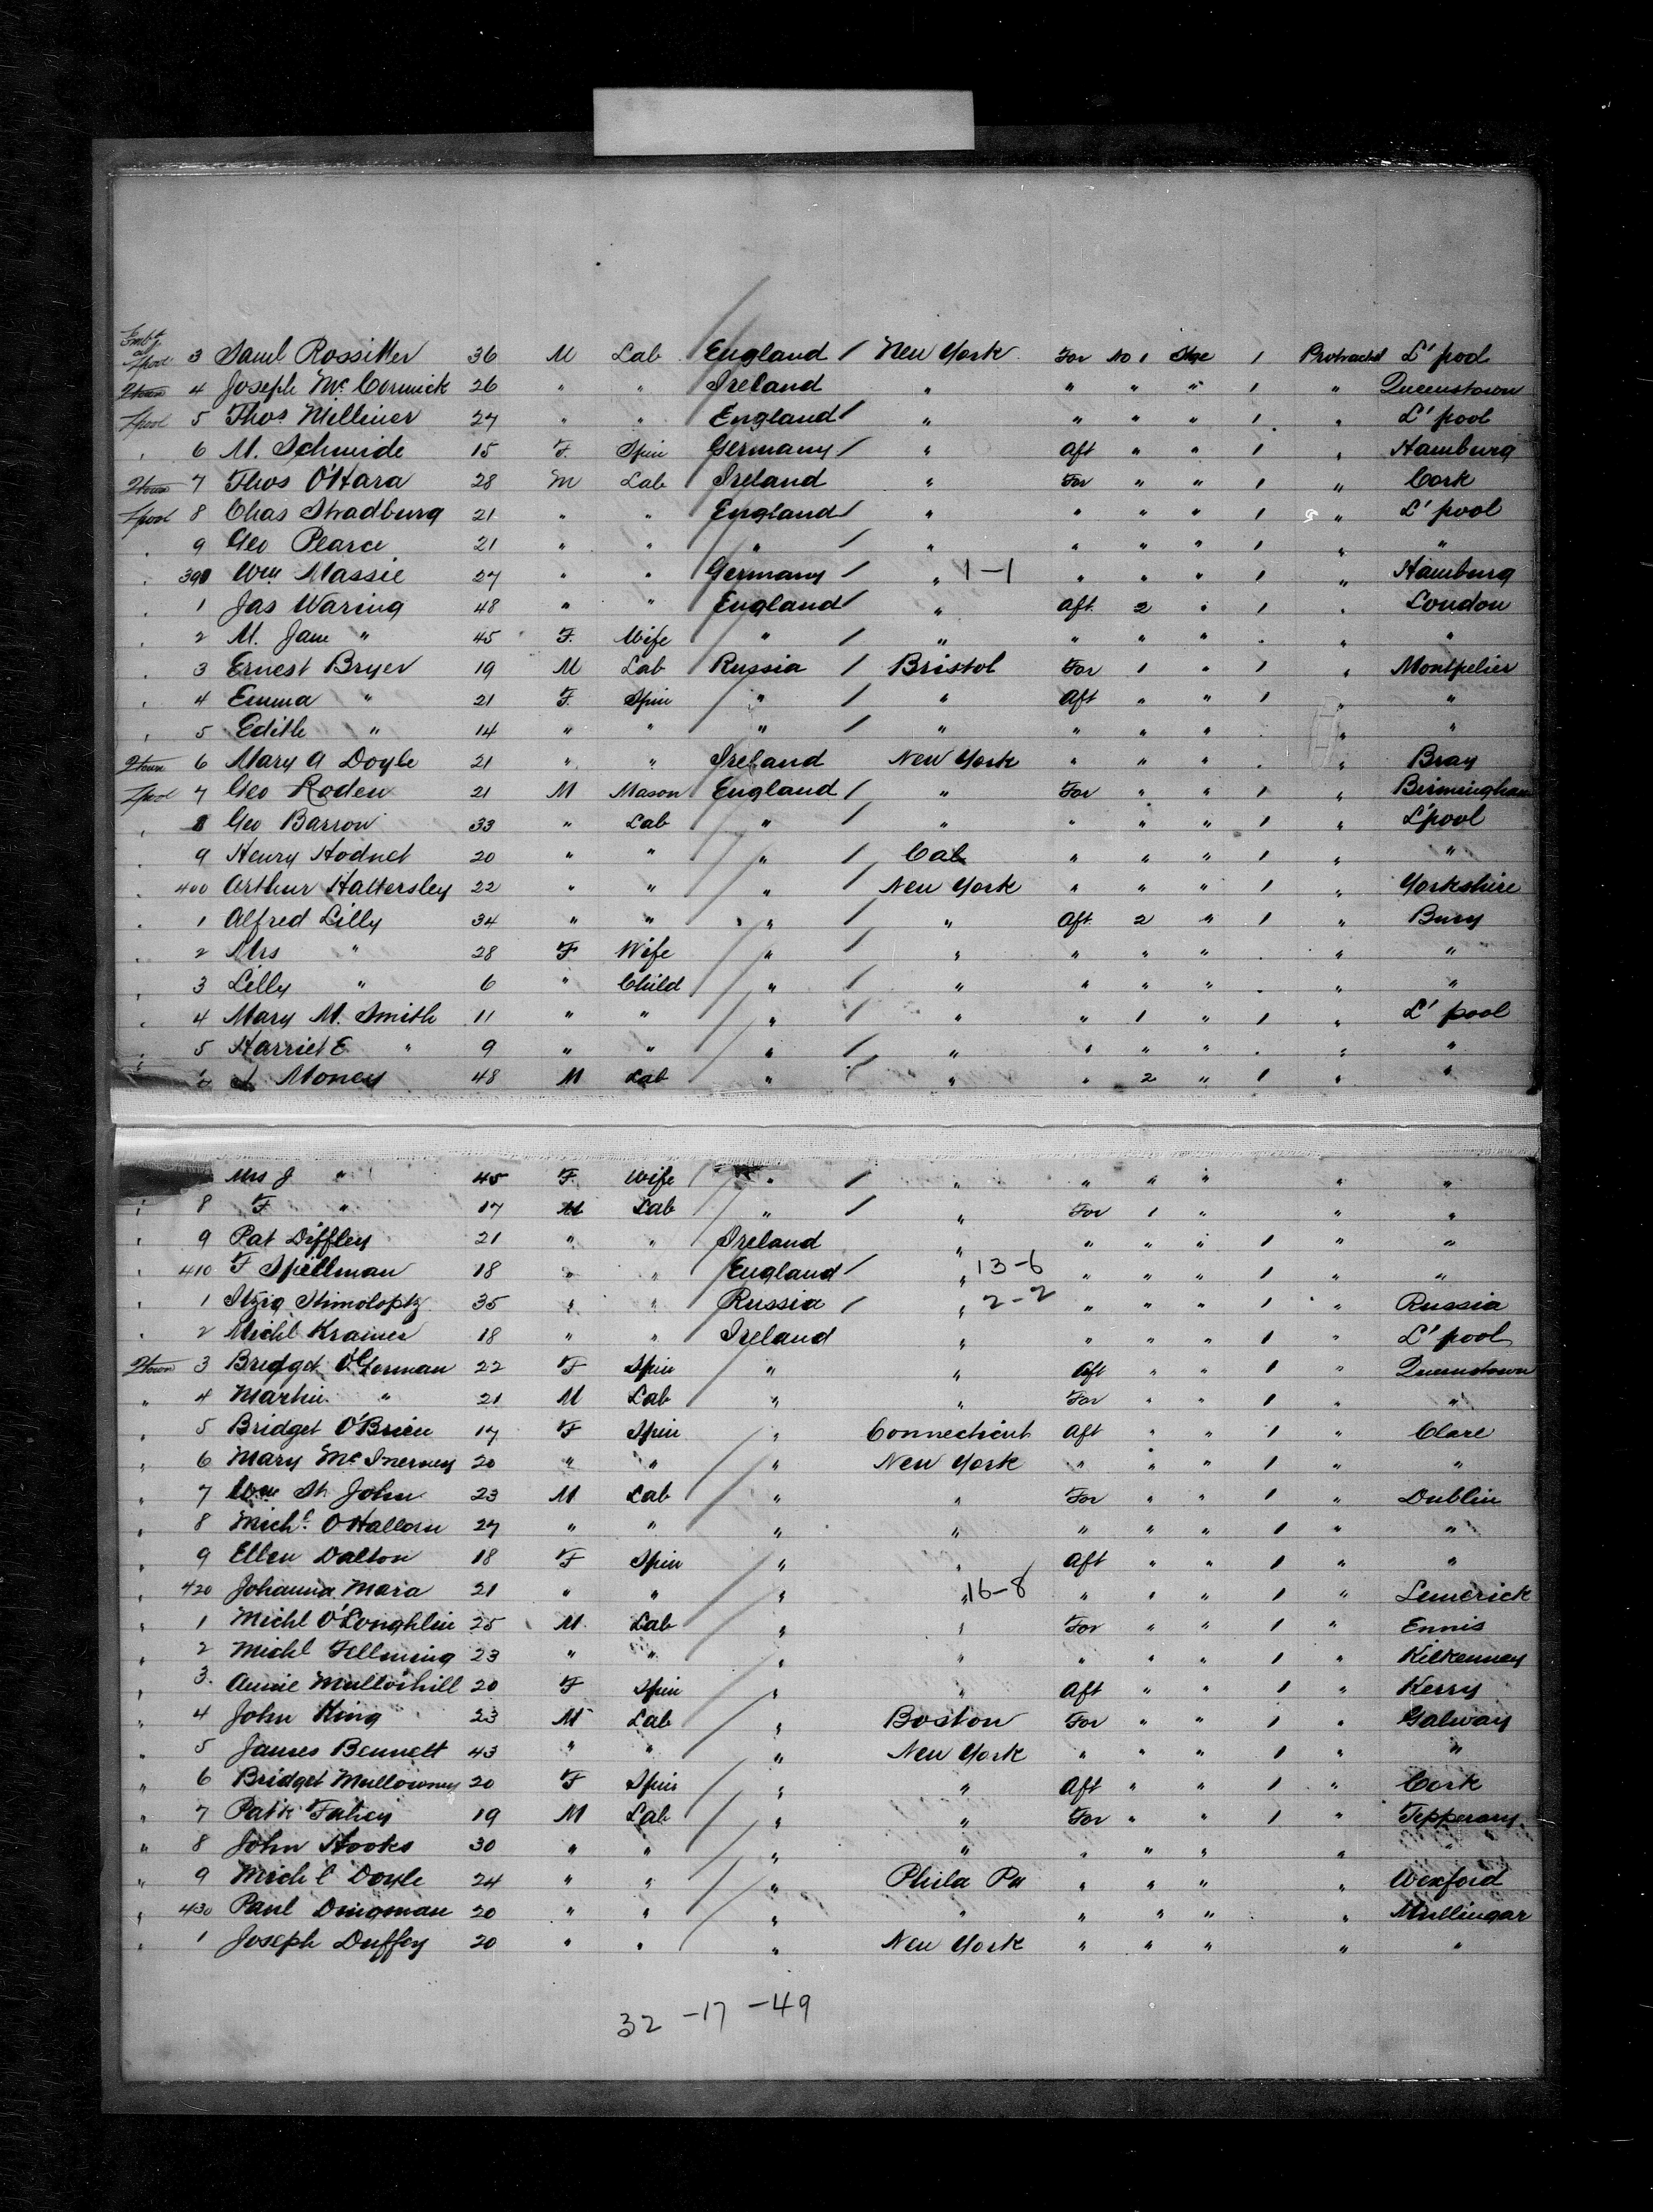 Embd at L'pool 3 Saml Rossitter 36 M Lab England / New York For No 1 Stge 1 Protracted L'pool
Qtown 4 Joseph McCormick 26 " " Ireland " " " " 1 " Queenstown
L'pool 5 Thos Milliner 27 " " England / " " " " 1 " L'pool
" 6 M. Schmide 15 F. Spin Germany / " Aft " " 1 " Hamburg
Qtown 7 Thos O'Hara 28 M Lab Ireland " For " " 1 " Cork
L'pool 8 Chas Stradburg 21 " " England / " " " " 1 " L'pool
" 9 Geo Pearce 21 " " " / " " " " 1 " "
" 390 Wm Massie 27 " " Germany / " 1-1 " " " 1 " Hamburg
" 1 Jas Waring 48 " " England / " Aft. 2 " 1 " London
" 2 M. Jane " 45 F. Wife " / " " " " . " "
" 3 Ernest Bryer 19 M Lab Russia / Bristol For 1 " 1 " Montpelier
" 4 Emma " 21 F. Spin " / " Aft " " 1 " "
" 5 Edith " 14 " " " / " " " " " "
Qtown 6 Mary A Doyle 21 " " Ireland New York " " " . " Bray
L'pool 7 Geo Roden 21 M Mason England / " For " " 1 " Birmingham
" 8 Geo Barrow 33 " Lab " / " " " " 1 " L'pool
" 9 Henry Hodnet 20 " " " / Cal " " " 1 " "
" 400 Arthur Hattersley 22 " " " / New York " " " 1 " Yorkshire
" 1 Alfred Lilly 34 " " " / " Aft. 2 " 1 " Bury
" 2 Mrs " 28 F Wife " / " " " " . " "
" 3 Lilly " 6 " Child " / " " " " . " "
" 4 Mary M. Smith 11 " " " / " " 1 " 1 " L'pool
" 5 Harriet E " 9 " " " / " " " " . " "
" 6 J Money 48 M Lab " / " " 2 " 1 " "
Mrs J " 45 F. Wife " / " " " " " "
" 8 F " 17 M Lab " / " For 1 " " "
" 9 Pat Diffley 21 " " Ireland " " " " 1 " "
" 410 F Spillman 18 " " England / " 13-6 " " " 1 " "
" 1 Itzig 35 " " Russia / " 2-2 " " " 1 " Russia
" 2 Michl Kramer 18 " " Ireland " " " " 1 " L'pool
Qtown 3 Bridget O'Gorman 22 F Spin " " Aft " " 1 " Queenstown
" 4 Martin " 21 M Lab " " For " " 1 " "
" 5 Bridget O'Brien 17 F Spin " Connecticut Aft " " 1 " Clare
" 6 Mary McInerney 20 " " " New York " " " 1 " "
" 7 Wm St John 23 M Lab " " For " " 1 " Dublin
" 8 Michl O'Halloran 27 " " " " " " " 1 " "
" 9 Ellen Dalton 18 F Spin " " Aft " " 1 " "
" 420 Johanna Mara 21 " " " " 16-8 " " " 1 " Limerick
" 1 Michl O'Loughlin 25 M. Lab " " For " " 1 " Ennis
" 2 Michl Fellming 23 " " " " " " " 1 " Kilkenney
" 3. Annie Mullowhill 20 F Spin " " Aft " " 1 " Kerry
" 4 John King 23 M Lab " Boston For " " 1 " Galway
" 5 James Bennett 43 " " " New York " " " 1 " "
" 6 Bridget Mullowney 20 F Spin " " Aft " " 1 " Cork
" 7 Patk Fahey 19 M Lab " " For " " 1 " Tipperary
" 8 John Hooks 30 " " " " " " " " "
" 9 Michl Doyle 24 " " " Phila Pa " " " " Wexford
" 430 Paul Dingman 20 " " " " " " " " Mullingar
" 1 Joseph Duffey 20 " " " New York " " " " "
32 -17 -49